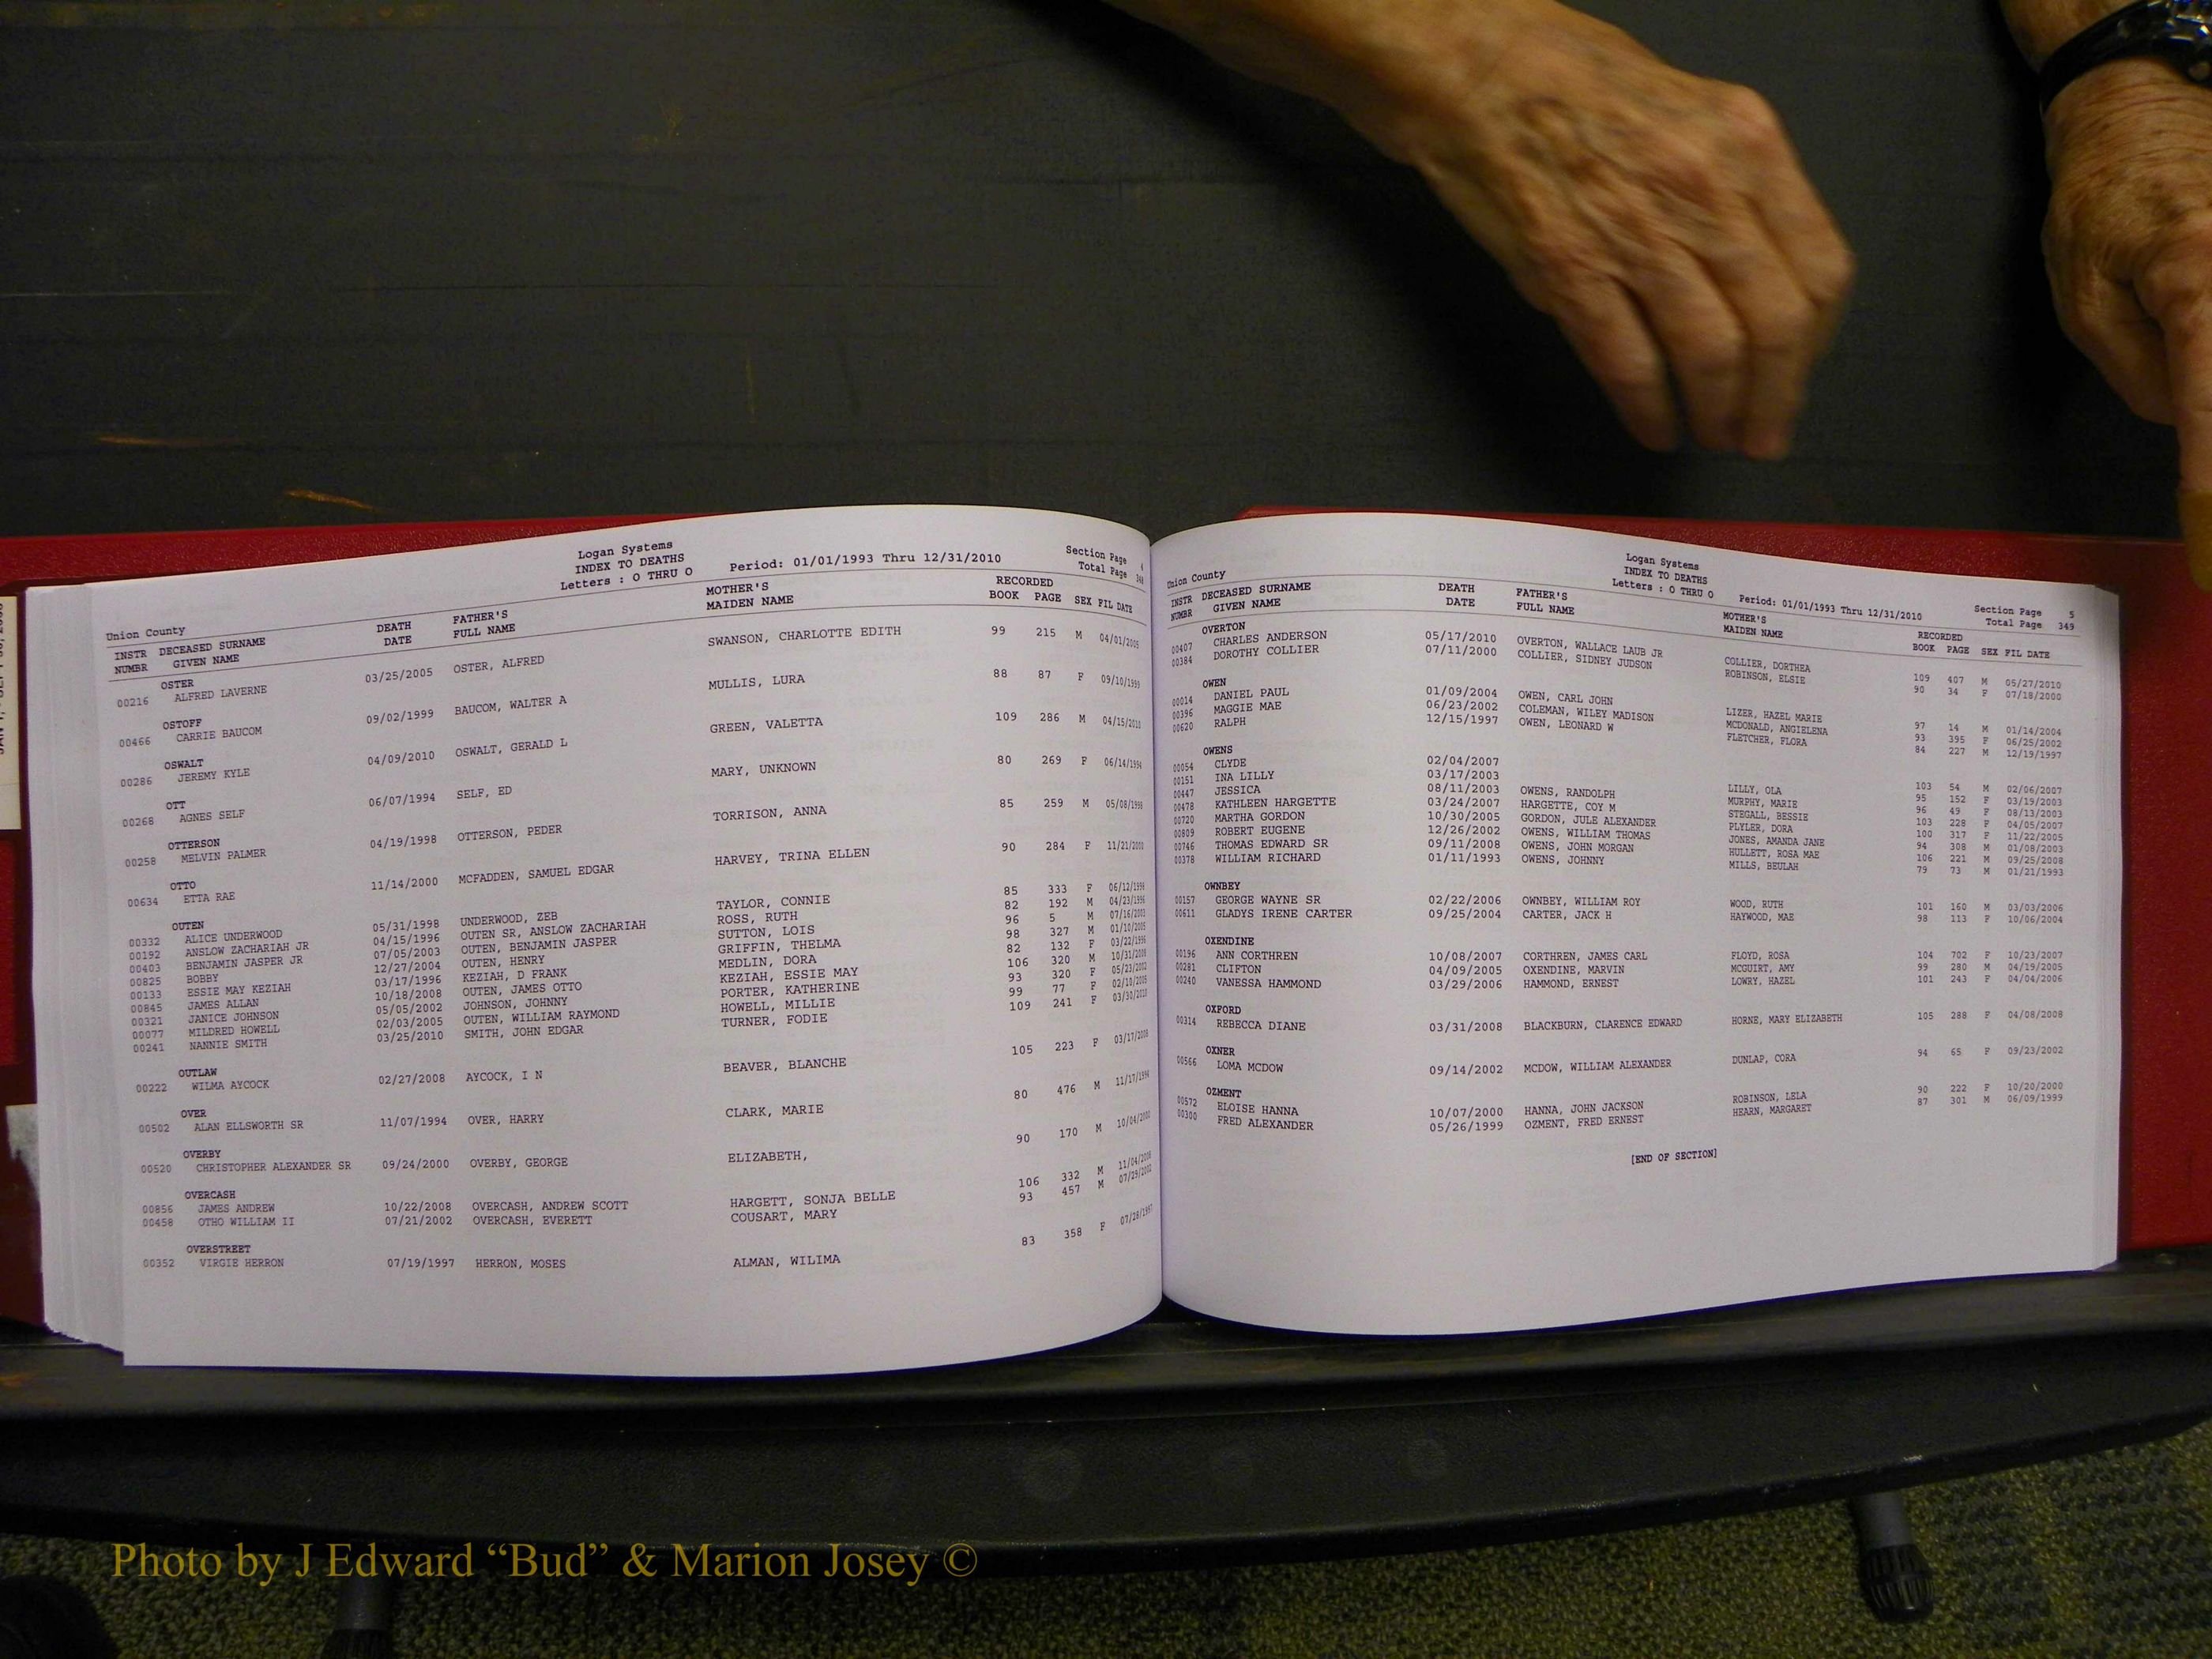 Union County
Logan Systems
INDEX TO DEATHS
Letters : O THRU O
Period: 01/01/1993 Thru 12/31/2010
Section Page 4
Total Page 348
INSTR DECEASED SURNAME DEATH FATHER'S MOTHER'S RECORDED
NUMBR GIVEN NAME DATE FULL NAME MAIDEN NAME BOOK PAGE SEX FIL DATE
OSTER
00216 ALFRED LAVERNE 03/25/2005 OSTER, ALFRED SWANSON, CHARLOTTE EDITH 99 215 M 04/01/2005
OSTOFF
00466 CARRIE BAUCOM 09/02/1999 BAUCOM, WALTER A MULLIS, LURA 88 87 F 09/10/1999
OSWALT
00286 JEREMY KYLE 04/09/2010 OSWALT, GERALD L GREEN, VALETTA 109 286 M 04/15/2010
OTT
00268 AGNES SELF 06/07/1994 SELF, ED MARY, UNKNOWN 80 269 F 06/14/1994
OTTERSON
00258 MELVIN PALMER 04/19/1998 OTTERSON, PEDER TORRISON, ANNA 85 259 M 05/08/1998
OTTO
00634 ETTA RAE 11/14/2000 MCFADDEN, SAMUEL EDGAR HARVEY, TRINA ELLEN 90 284 F 11/21/2000
OUTEN
00332 ALICE UNDERWOOD 05/31/1998 UNDERWOOD, ZEB TAYLOR, CONNIE 85 333 F 06/12/1998
00192 ANSLOW ZACHARIAH JR 04/15/1996 OUTEN SR, ANSLOW ZACHARIAH ROSS, RUTH 82 192 M 04/23/1996
00403 BENJAMIN JASPER JR 07/05/2003 OUTEN, BENJAMIN JASPER SUTTON, LOIS 96 5 M 07/16/2003
00825 BOBBY 12/27/2004 OUTEN, HENRY GRIFFIN, THELMA 98 327 M 01/10/2005
00133 ESSIE MAY KEZIAH 03/17/1996 KEZIAH, D FRANK MEDLIN, DORA 82 132 F 03/22/1996
00845 JAMES ALLAN 10/18/2008 OUTEN, JAMES OTTO KEZIAH, ESSIE MAY 106 320 M 10/31/2008
00321 JANICE JOHNSON 05/05/2002 JOHNSON, JOHNNY PORTER, KATHERINE 93 320 F 05/23/2002
00077 MILDRED HOWELL 02/03/2005 OUTEN, WILLIAM RAYMOND HOWELL, MILLIE 99 77 F 02/10/2005
00241 NANNIE SMITH 03/25/2010 SMITH, JOHN EDGAR TURNER, FODIE 109 241 F 03/30/2010
OUTLAW
00222 WILMA AYCOCK 02/27/2008 AYCOCK, I N BEAVER, BLANCHE 105 223 F 03/17/2008
OVER
00502 ALAN ELLSWORTH SR 11/07/1994 OVER, HARRY CLARK, MARIE 80 476 M 11/17/1994
OVERBY
00520 CHRISTOPHER ALEXANDER SR 09/24/2000 OVERBY, GEORGE ELIZABETH, 90 170 M 10/04/2000
OVERCASH
00856 JAMES ANDREW 10/22/2008 OVERCASH, ANDREW SCOTT HARGETT, SONJA BELLE 106 332 M 11/04/2008
00458 OTHO WILLIAM II 07/21/2002 OVERCASH, EVERETT COUSART, MARY 93 457 M 07/29/2002
OVERSTREET
00352 VIRGIE HERRON 07/19/1997 HERRON, MOSES ALMAN, WILIMA 83 358 F 07/28/1997
Union County
Logan Systems
INDEX TO DEATHS
Letters : O THRU O
Period: 01/01/1993 Thru 12/31/2010
Section Page 5
Total Page 349
INSTR DECEASED SURNAME DEATH FATHER'S MOTHER'S RECORDED
NUMBR GIVEN NAME DATE FULL NAME MAIDEN NAME BOOK PAGE SEX FIL DATE
OVERTON
00407 CHARLES ANDERSON 05/17/2010 OVERTON, WALLACE LAUB JR COLLIER, DORTHEA 109 407 M 05/27/2010
00384 DOROTHY COLLIER 07/11/2000 COLLIER, SIDNEY JUDSON ROBINSON, ELSIE 90 34 F 07/18/2000
OWEN
00014 DANIEL PAUL 01/09/2004 OWEN, CARL JOHN LIZER, HAZEL MARIE 97 14 M 01/14/2004
00396 MAGGIE MAE 06/23/2002 COLEMAN, WILEY MADISON MCDONALD, ANGIELENA 93 395 F 06/25/2002
00620 RALPH 12/15/1997 OWEN, LEONARD W FLETCHER, FLORA 84 227 M 12/19/1997
OWENS
00054 CLYDE 02/04/2007 103 54 M 02/06/2007
00151 INA LILLY 03/17/2003 LILLY, OLA 95 152 F 03/19/2003
00447 JESSICA 08/11/2003 OWENS, RANDOLPH MURPHY, MARIE 96 49 F 08/13/2003
00478 KATHLEEN HARGETTE 03/24/2007 HARGETTE, COY M STEGALL, BESSIE 103 228 F 04/05/2007
00720 MARTHA GORDON 10/30/2005 GORDON, JULE ALEXANDER PLYLER, DORA 100 317 F 11/22/2005
00809 ROBERT EUGENE 12/26/2002 OWENS, WILLIAM THOMAS JONES, AMANDA JANE 94 308 M 01/08/2003
00746 THOMAS EDWARD SR 09/11/2008 OWENS, JOHN MORGAN HULLETT, ROSA MAE 106 221 M 09/25/2008
00378 WILLIAM RICHARD 01/11/1993 OWENS, JOHNNY MILLS, BEULAH 79 73 M 01/21/1993
OWNBEY
00157 GEORGE WAYNE SR 02/22/2006 OWNBEY, WILLIAM ROY WOOD, RUTH 101 160 M 03/03/2006
00611 GLADYS IRENE CARTER 09/25/2004 CARTER, JACK H HAYWOOD, MAE 98 113 F 10/06/2004
OXENDINE
00196 ANN CORTHREN 10/08/2007 CORTHREN, JAMES CARL FLOYD, ROSA 104 702 F 10/23/2007
00281 CLIFTON 04/09/2005 OXENDINE, MARVIN MCGUIRT, AMY 99 280 M 04/19/2005
00240 VANESSA HAMMOND 03/29/2006 HAMMOND, ERNEST LOWRY, HAZEL 101 243 F 04/04/2006
OXFORD
00314 REBECCA DIANE 03/31/2008 BLACKBURN, CLARENCE EDWARD HORNE, MARY ELIZABETH 105 288 F 04/08/2008
OXNER
00566 LOMA MCDOW 09/14/2002 MCDOW, WILLIAM ALEXANDER DUNLAP, CORA 94 65 F 09/23/2002
OZMENT
00572 ELOISE HANNA 10/07/2000 HANNA, JOHN JACKSON ROBINSON, LELA 90 222 F 10/20/2000
00300 FRED ALEXANDER 05/26/1999 OZMENT, FRED ERNEST HEARN, MARGARET 87 301 M 06/09/1999
[END OF SECTION]
Photo by J Edward “Bud” & Marion Josey ©